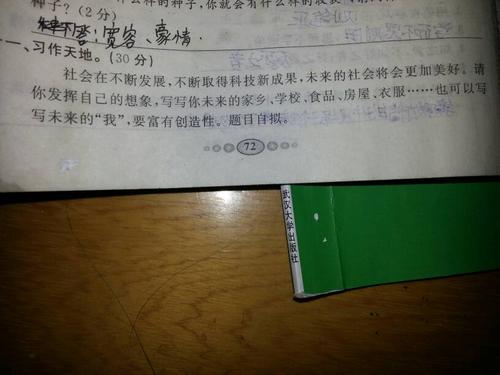 种子?(2分)
答:宽容、豪情.
一、习作天地。(30分)
社会在不断发展,不断取得科技新成果,未来的社会将会更加美好。请
你发挥自己的想象,写写你未来的家乡、学校、食品、房屋、衣服……也可以写
写未来的“我”,要富有创造性。题目自拟。
72
武汉大学出版社